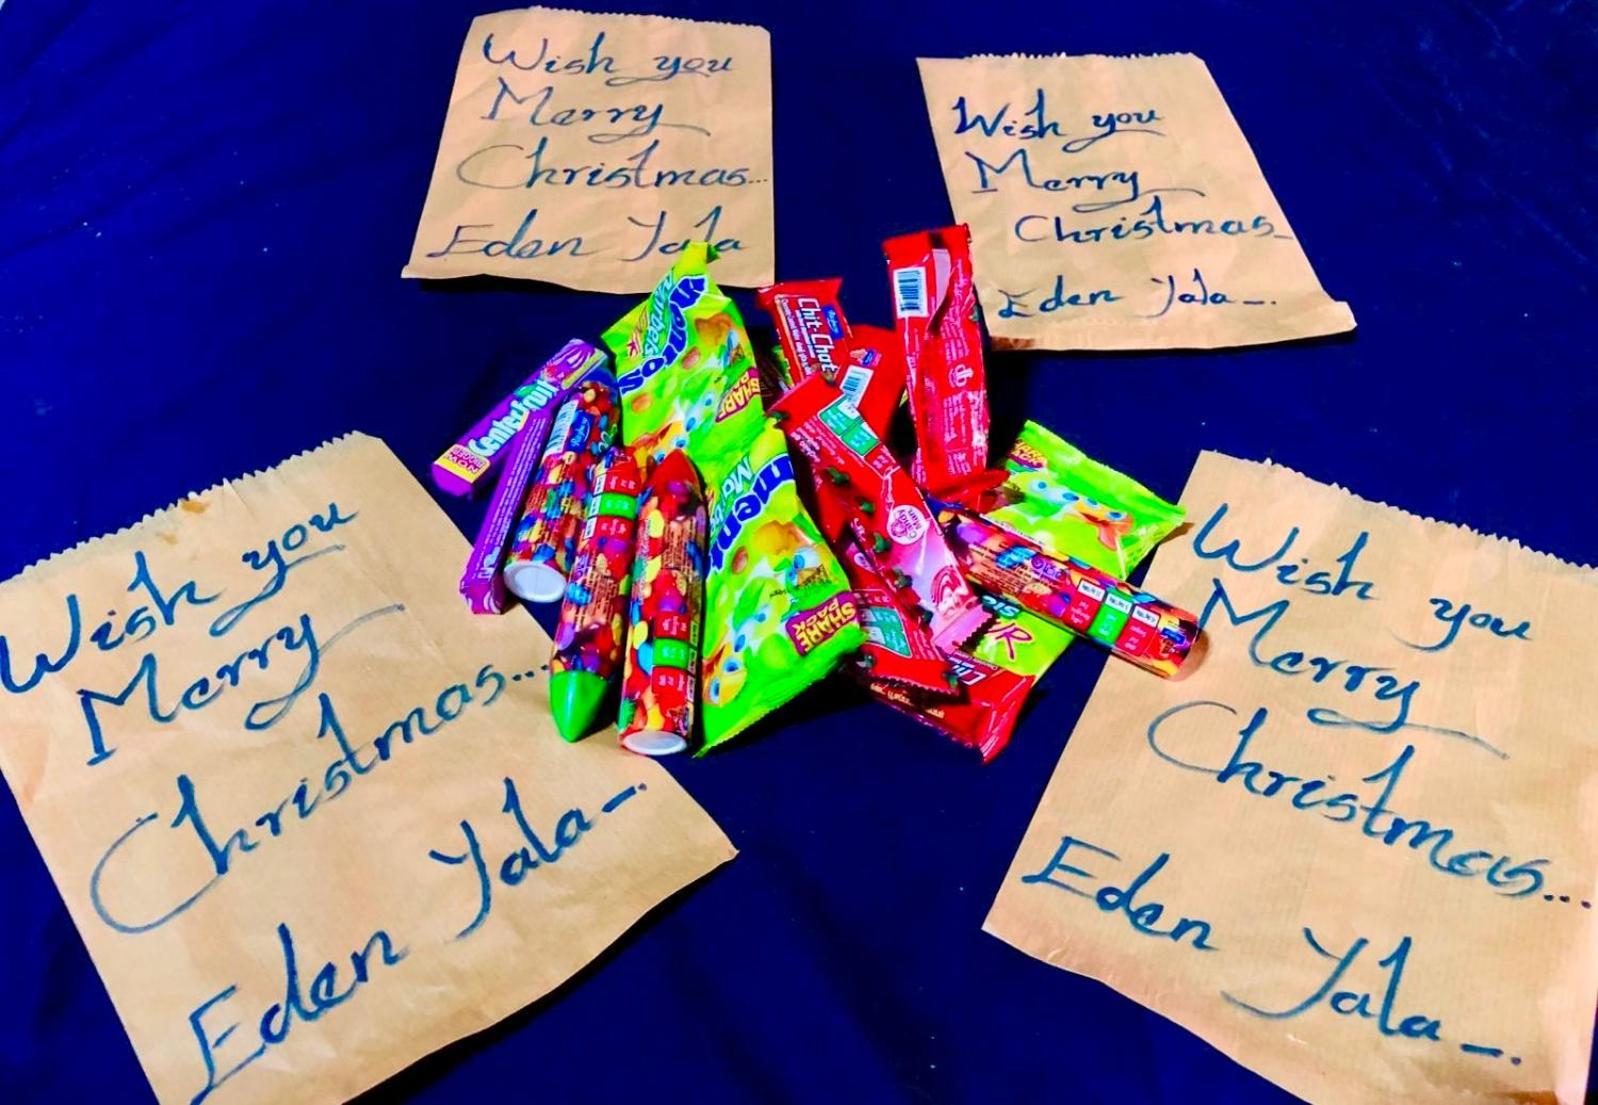 Wish you
Merry
Christmas...
Eden Yala
Wish you
Merry
Christmas_
Eden Yala_.
Centerfruit
mentos
SHARE
PACK
Chit-Chat
mentos
SHARE
PACK
Candy
Man
Wish you
Merry
Christmas...
Eden Yala-.
Wish you
Merry
Christmas...
Eden Yala_.